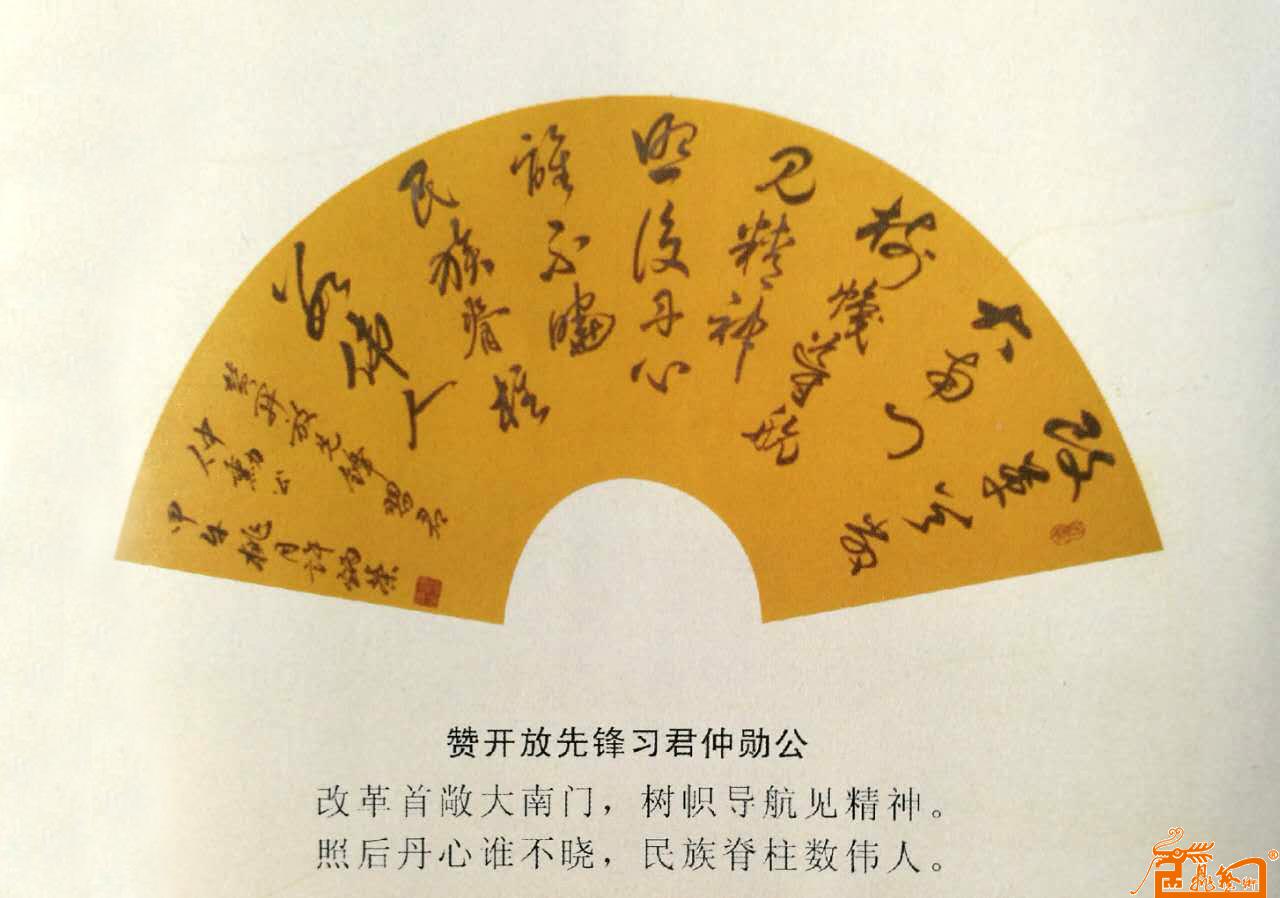 改革首敞
大南门
樹幟導航
见精神
照後丹心
誰不曉
民族脊柱
数伟人
赞开放先锋習君
仲勳公
甲午桃月許
赞开放先锋习君仲勋公
改革首敞大南门，树帜导航见精神。
照后丹心谁不晓，民族脊柱数伟人。